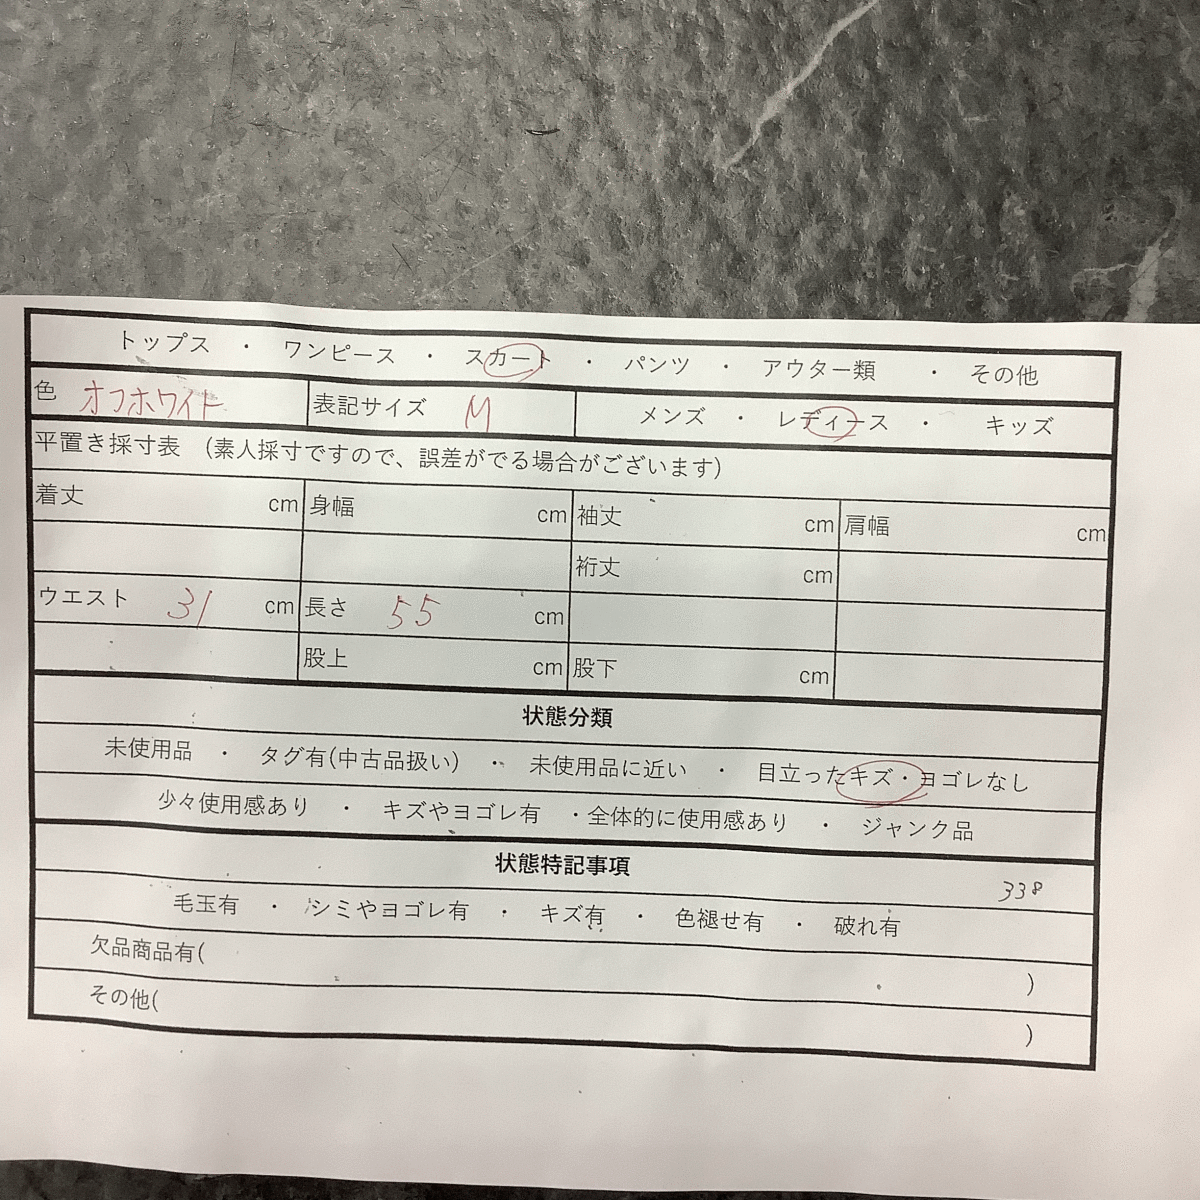 トップス ・ ワンピース ・ スカート ・ パンツ ・ アウター類 ・ その他
色 オフホワイト 表記サイズ M メンズ ・ レディース ・ キッズ
平置き採寸表 (素人採寸ですので、誤差がでる場合がございます)
着丈 cm 身幅 cm 袖丈 cm 肩幅 cm
裄丈 cm
ウエスト 31 cm 長さ 55 cm
股上 cm 股下 cm
状態分類
未使用品 ・ タグ有(中古品扱い) ・ 未使用品に近い ・ 目立ったキズ・ヨゴレなし
少々使用感あり ・ キズやヨゴレ有 ・全体的に使用感あり ・ ジャンク品
状態特記事項 338
毛玉有 ・ シミやヨゴレ有 ・ キズ有 ・ 色褪せ有 ・ 破れ有
欠品商品有( )
その他( )